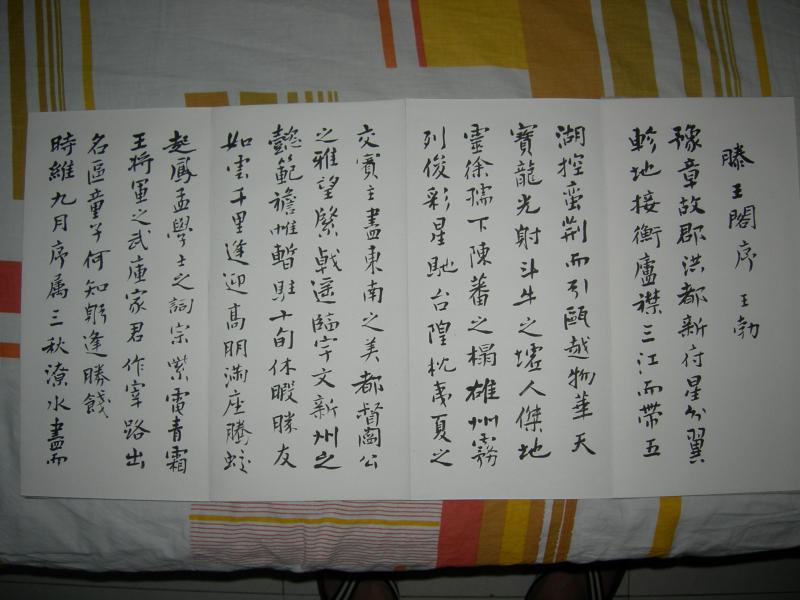 滕王閣序 王勃
豫章故郡洪都新府星分翼
軫地接衡廬襟三江而帶五
湖控蠻荆而引甌越物華天
寶龍光射斗牛之墟人傑地
靈徐孺下陳蕃之榻雄州霧
列俊彩星馳台隍枕夷夏之
交賓主盡東南之美都督閻公
之雅望棨戟遥臨宇文新州之
懿範襜帷暫駐十旬休暇勝友
如雲千里逢迎高明满座騰蛟
起鳳孟學士之詞宗紫電青霜
王将軍之武庫家君作宰路出
名區童子何知躬逢勝餞
時維九月序属三秋潦水盡而